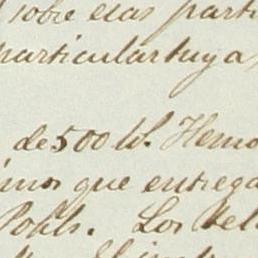 sobre esas parti
particular tuya,
de 500 W. Hemo
imos que entrega
Los